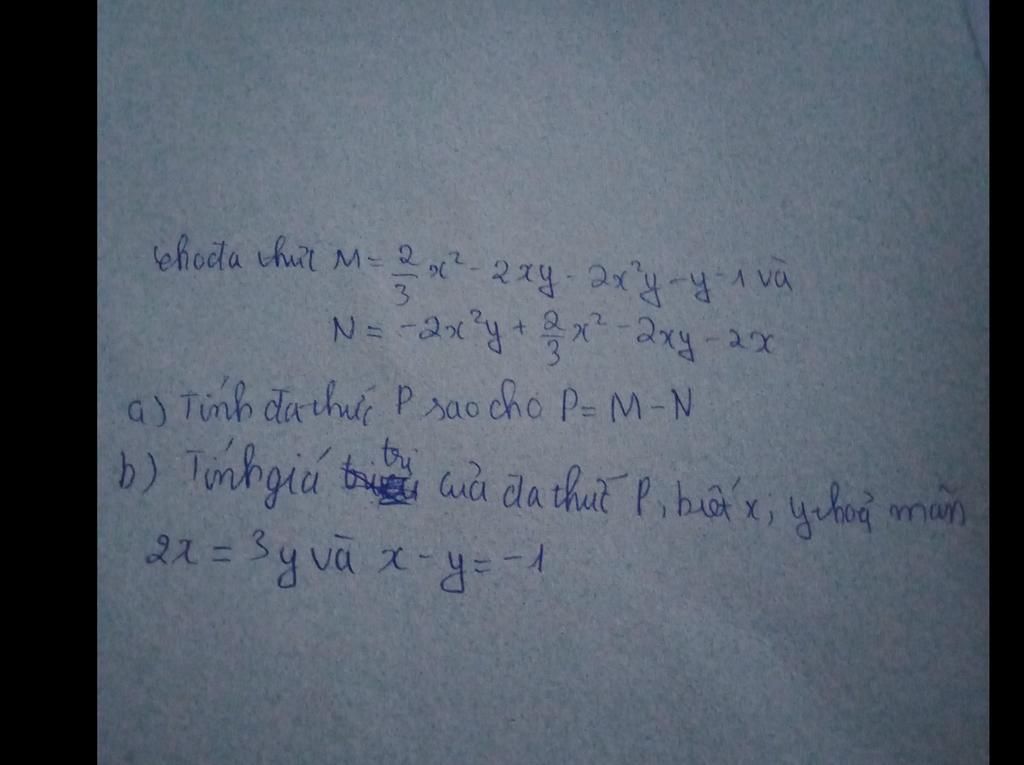 Cho đa thức M = 2/3 x² - 2xy - 2x²y - y - 1 và
N = -2x²y + 2/3 x² - 2xy - 2x
a) Tính đa thức P sao cho P = M - N
b) Tính giá trị của đa thức P, biết x; y thoả mãn
2x = 3y và x - y = -1